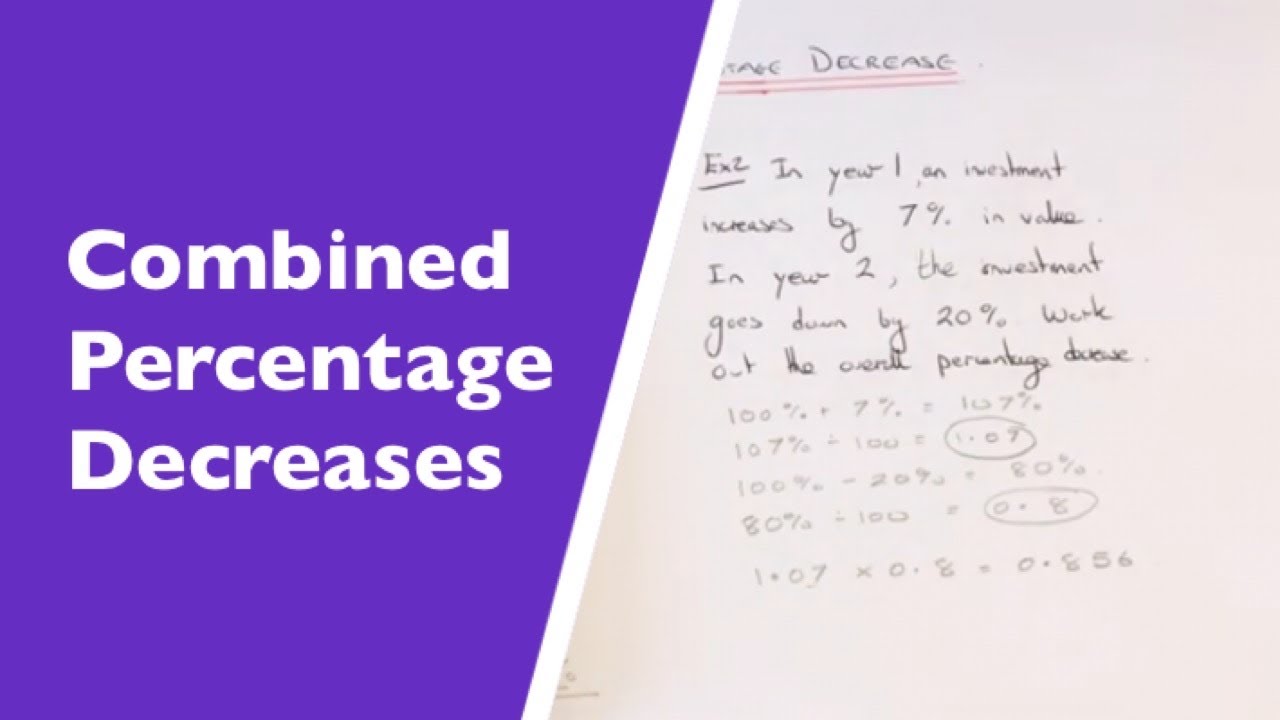 Combined
Percentage
Decreases
TAGE DECREASE.
Ex2 In year 1, an investment
increases by 7% in value.
In year 2, the investment
goes down by 20%. Work
out the overall percentage decrease.
100% + 7% = 107%
107% ÷ 100 = 1.07
100% - 20% = 80%.
80% ÷ 100 = 0.8
1.07 × 0.8 = 0.856